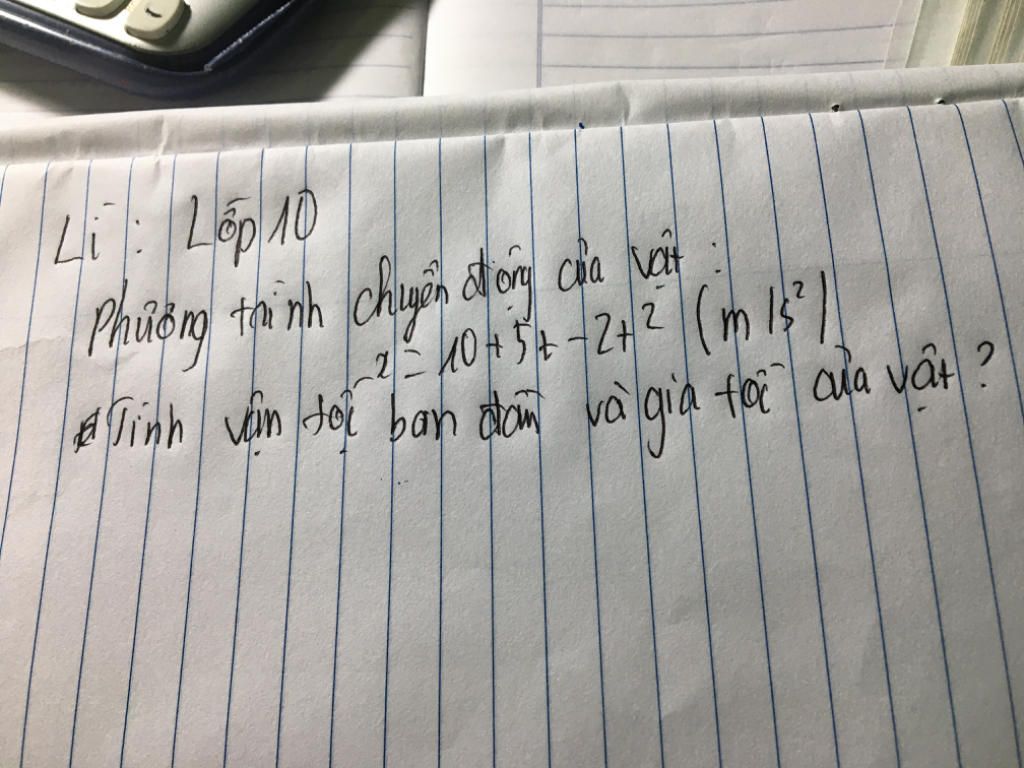 Lí: Lớp 10
Phương trình chuyển động của vật:
x = 10 + 5t - 2t² (m/s²)
Tính vận tốc ban đầu và gia tốc của vật?